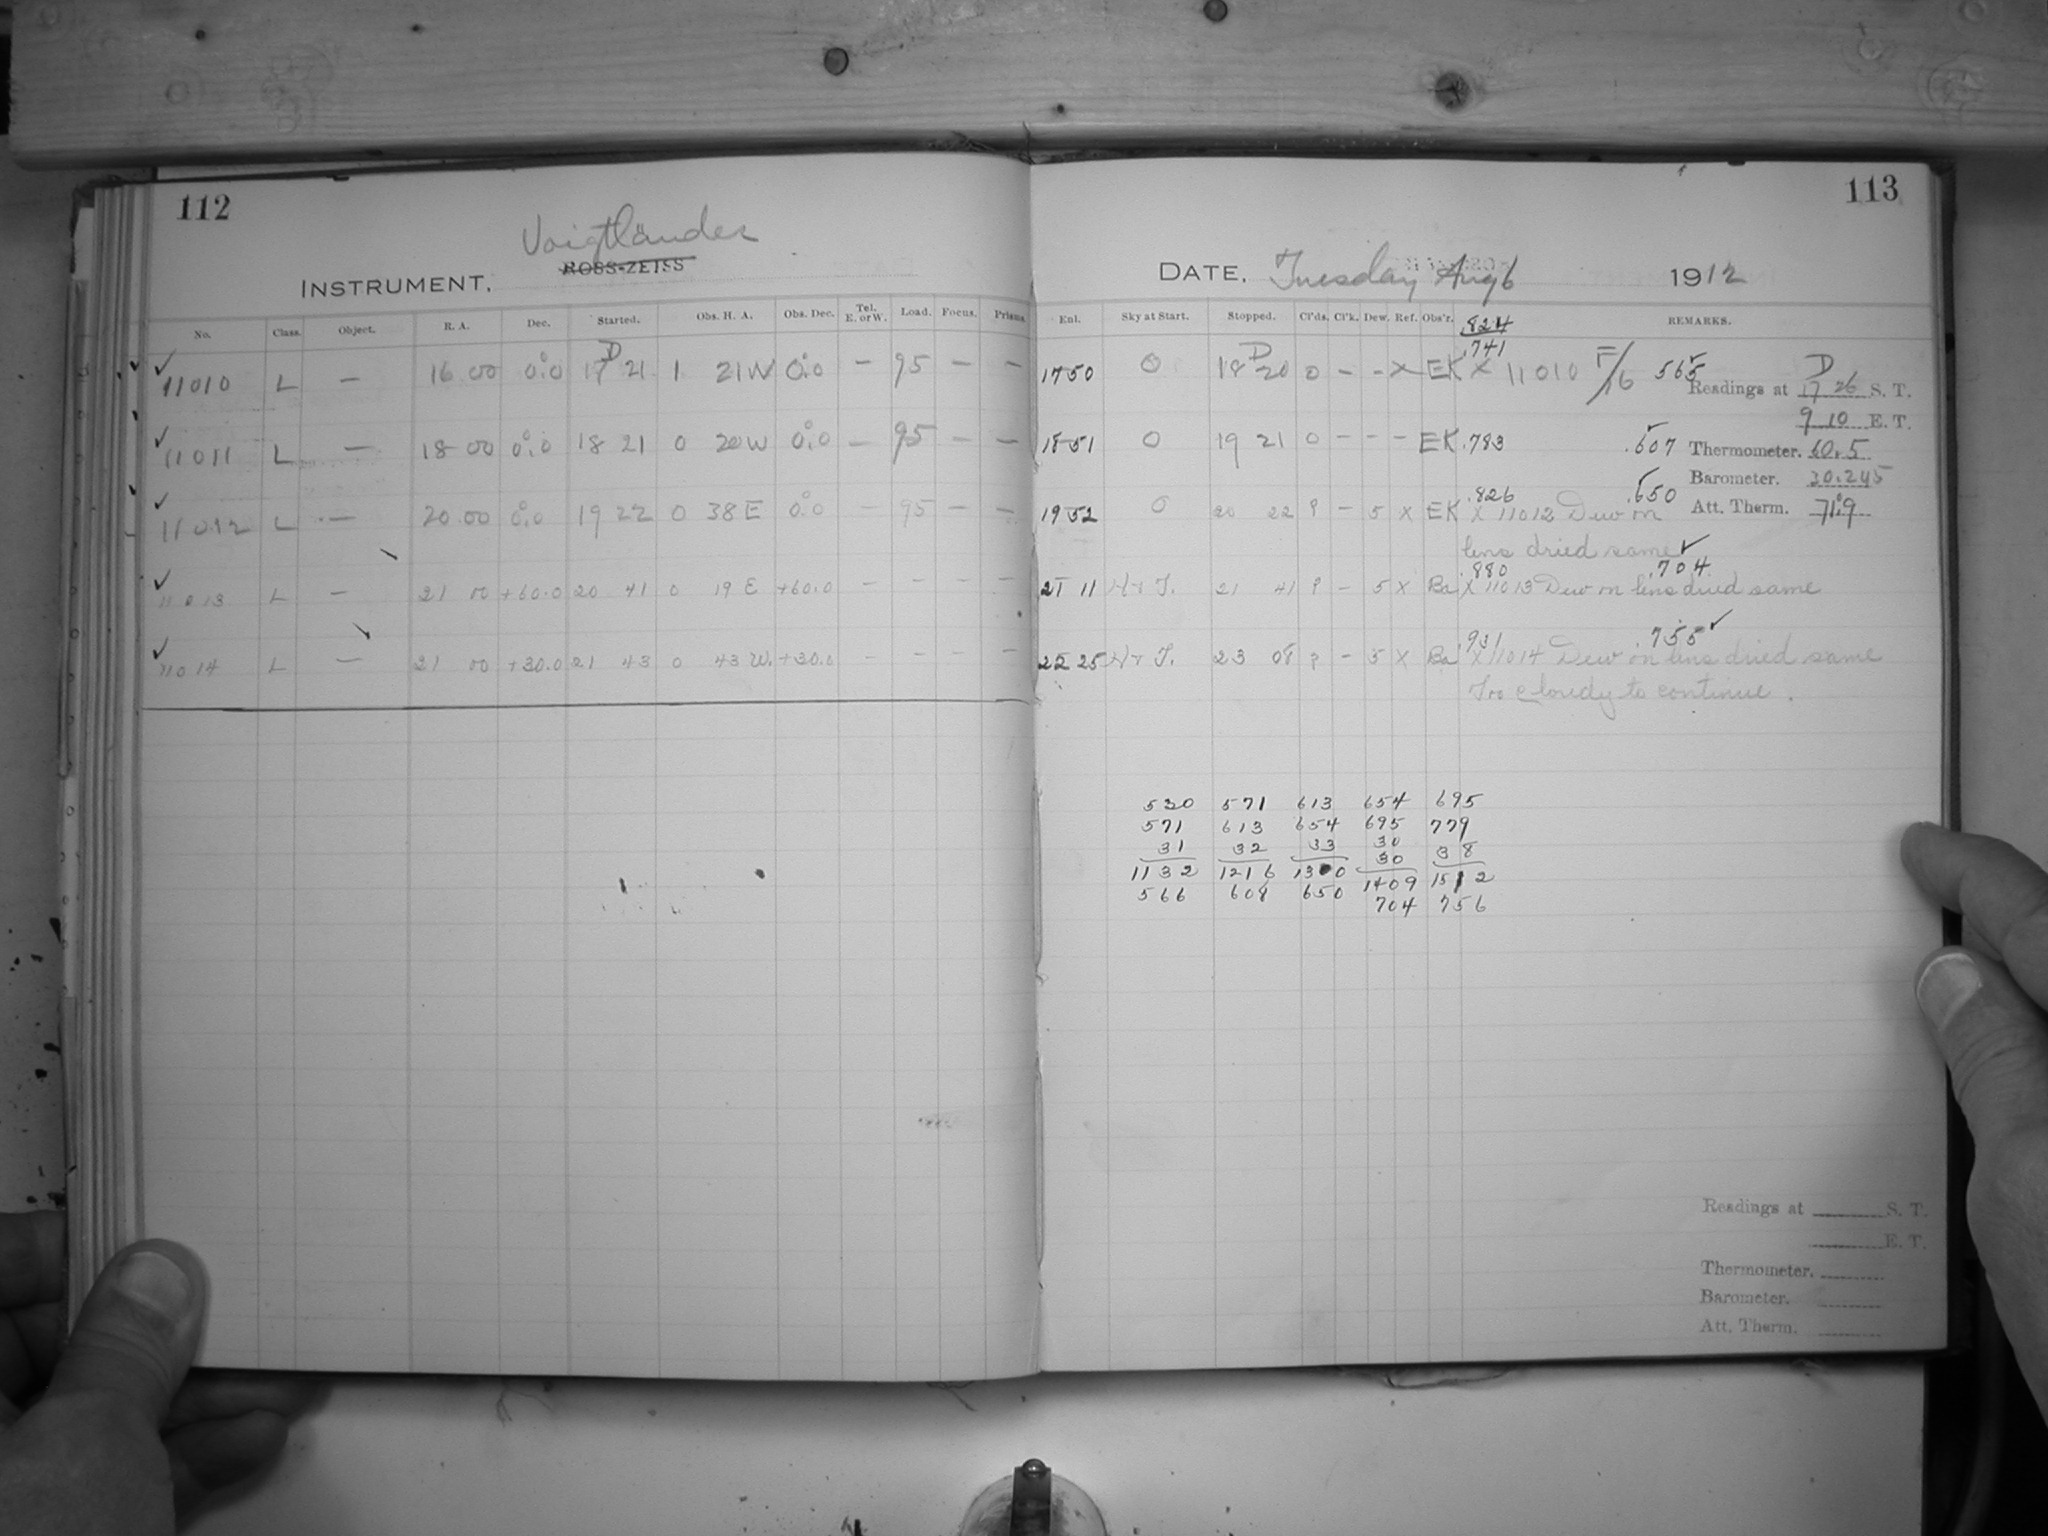 112
Voigtländer
ROSS-ZEISS
INSTRUMENT.
No. Class. Object. R. A. Dec. Started. Obs. H. A. Obs. Dec. Tel. E. or W. Load. Focus. Prisms.
11010 L — 16 00 0.0 17 D 21 1 21 W 0.0 — 95 — —
11011 L — 18 00 0.0 18 21 0 20 W 0.0 — 95 — —
11012 L — 20 00 0.0 19 22 0 38 E 0.0 — 95 — —
11013 L — 21 00 +60.0 20 41 0 19 E +60.0 — — — —
11014 L — 21 00 +30.0 21 43 0 43 W. +30.0 — — — —
113
DATE. Tuesday Aug 6 1912
Enl. Sky at Start. Stopped. Cl'ds. Cl'k. Dew. Ref. Obs'r. REMARKS.
.824
.741
17 50 0 18 D 20 0 — — X EK X 11010 F/16 565
Readings at D 17 26 S. T.
9 10 E. T.
18 51 0 19 21 0 — — — EK .783 .607
Thermometer. 60.5
Barometer. 30.245
.826 .650
19 52 0 20 22 ? — 5 X EK X 11012 Dew on
Att. Therm. 71.9
lens dried same
.880 .704
21 11 H + T. 21 41 ? — 5 X Ba X 11013 Dew on lens dried same
931 .755
22 25 H + T. 23 08 ? — 5 X Ba X 11014 Dew on lens dried same
Too cloudy to continue.
530 571 613 654 695
571 613 654 695 779
31 32 33 30 38
30
1132 1216 1300 1409 1512
566 608 650 704 756
Readings at S. T.
E. T.
Thermometer.
Barometer.
Att. Therm.